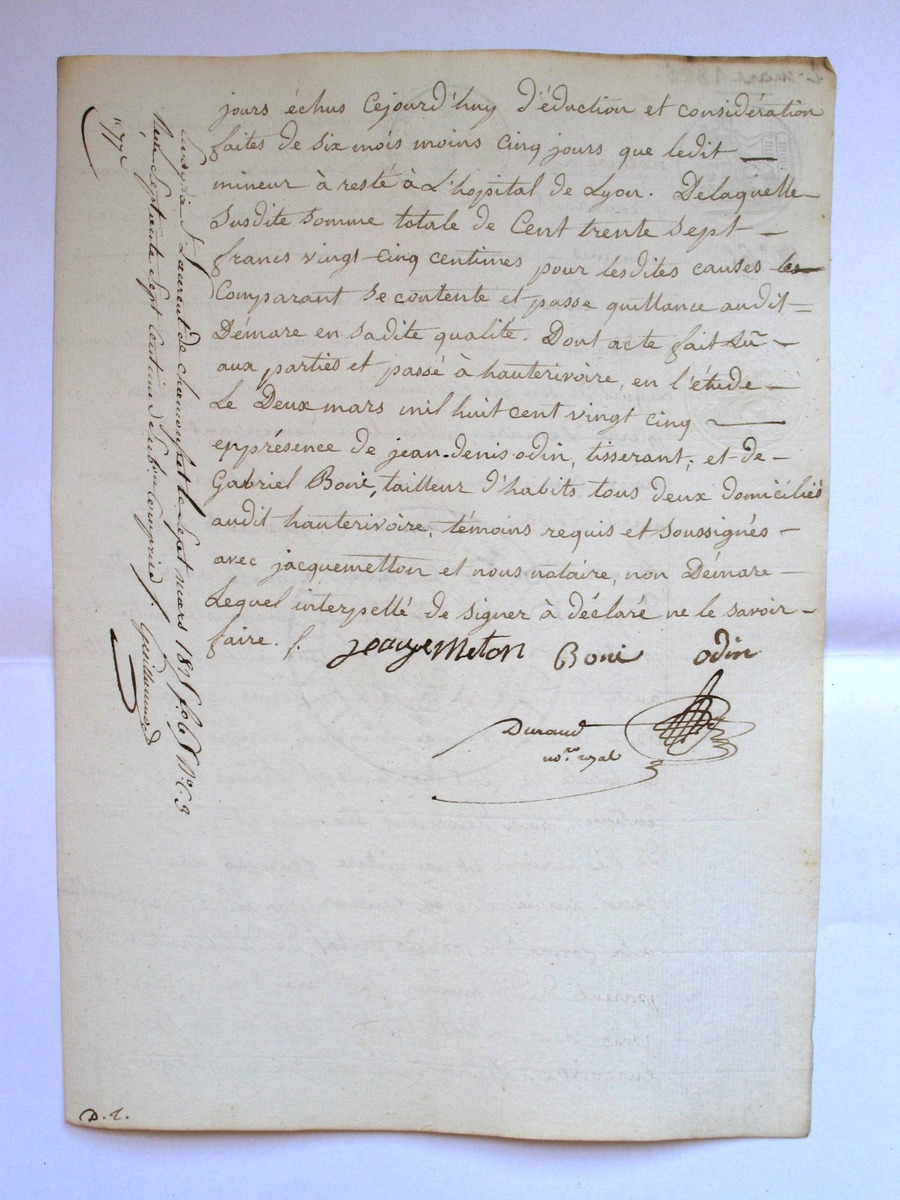 jours échus Cejourd'huy d'éduction et considération
faites de six mois moins cinq jours que ledit
mineur à resté à L'hospital de Lyon. Delaquelle
Susdite somme totale de Cent trente sept
francs vingt-cinq centimes pour lesdites causes les
Comparant se contente et passe quittance audit
Démare en sadite qualité. Dont acte fait Lû
aux parties et passé à hauterivoire, en l'étude
Le Deux mars mil huit cent vingt cinq
en présence de jean-denis-odin, tisserant, et de
Gabriel Boni, tailleur d'habits tous deux domiciliés
audit hauterivoire, témoins requis et soussignés
avec jacquemetton et nous notaire, non Démare
Lequel interpellé de signer à déclaré ne le savoir
faire. f.
Jacquemeton Boni odin
Durand
no.re royal
St Laurent de chamousset le sept mars 1825 f.o
Septante Sept Centimes Compris
"77c
D. L.